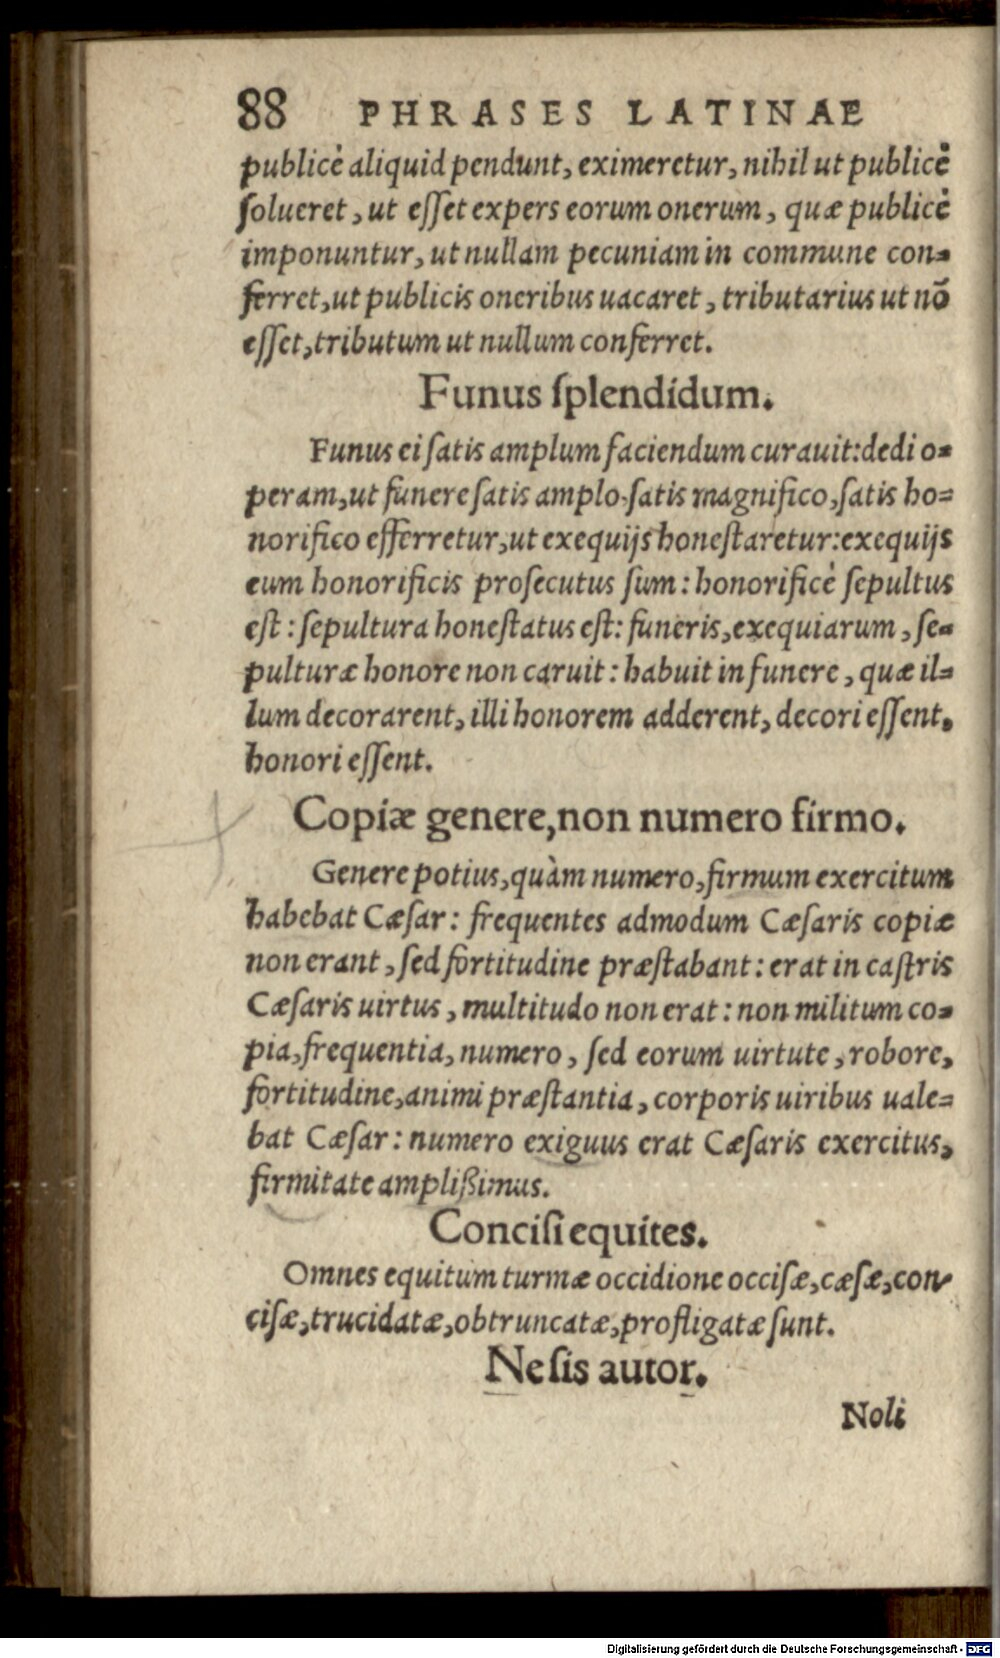 88 PHRASES LATINAE
publicè aliquid pendunt, eximeretur, nihil ut publicè
ſolueret, ut eſſet expers eorum onerum, quæ publicè
imponuntur, ut nullam pecuniam in commune con-
ferret, ut publicis oneribus uacaret, tributarius ut nō
eſſet, tributum ut nullum conferret.
Funus ſplendidum.
Funus ei ſatis amplum faciendum curauit: dedi o-
peram, ut funere ſatis amplo, ſatis magnifico, ſatis ho-
norifico efferretur, ut exequijs honeſtaretur: exequijs
eum honorificis proſecutus ſum: honorificè ſepultus
eſt: ſepultura honeſtatus eſt: funeris, exequiarum, ſe-
pulturæ honore non caruit: habuit in funere, quæ il-
lum decorarent, illi honorem adderent, decori eſſent,
honori eſſent.
Copiæ genere, non numero firmo.
Genere potius, quàm numero, firmum exercitum
habebat Cæſar: frequentes admodum Cæſaris copiæ
non erant, ſed fortitudine præſtabant: erat in caſtris
Cæſaris uirtus, multitudo non erat: non militum co-
pia, frequentia, numero, ſed eorum uirtute, robore,
fortitudine, animi præſtantia, corporis uiribus uale-
bat Cæſar: numero exiguus erat Cæſaris exercitus,
firmitate ampliſſimus.
Conciſi equites.
Omnes equitum turmæ occidione occiſæ, cæſæ, con-
ciſæ, trucidatæ, obtruncatæ, profligatæ ſunt.
Ne ſis autor.
Noli
Digitalisierung gefördert durch die Deutsche Forschungsgemeinschaft - DFG